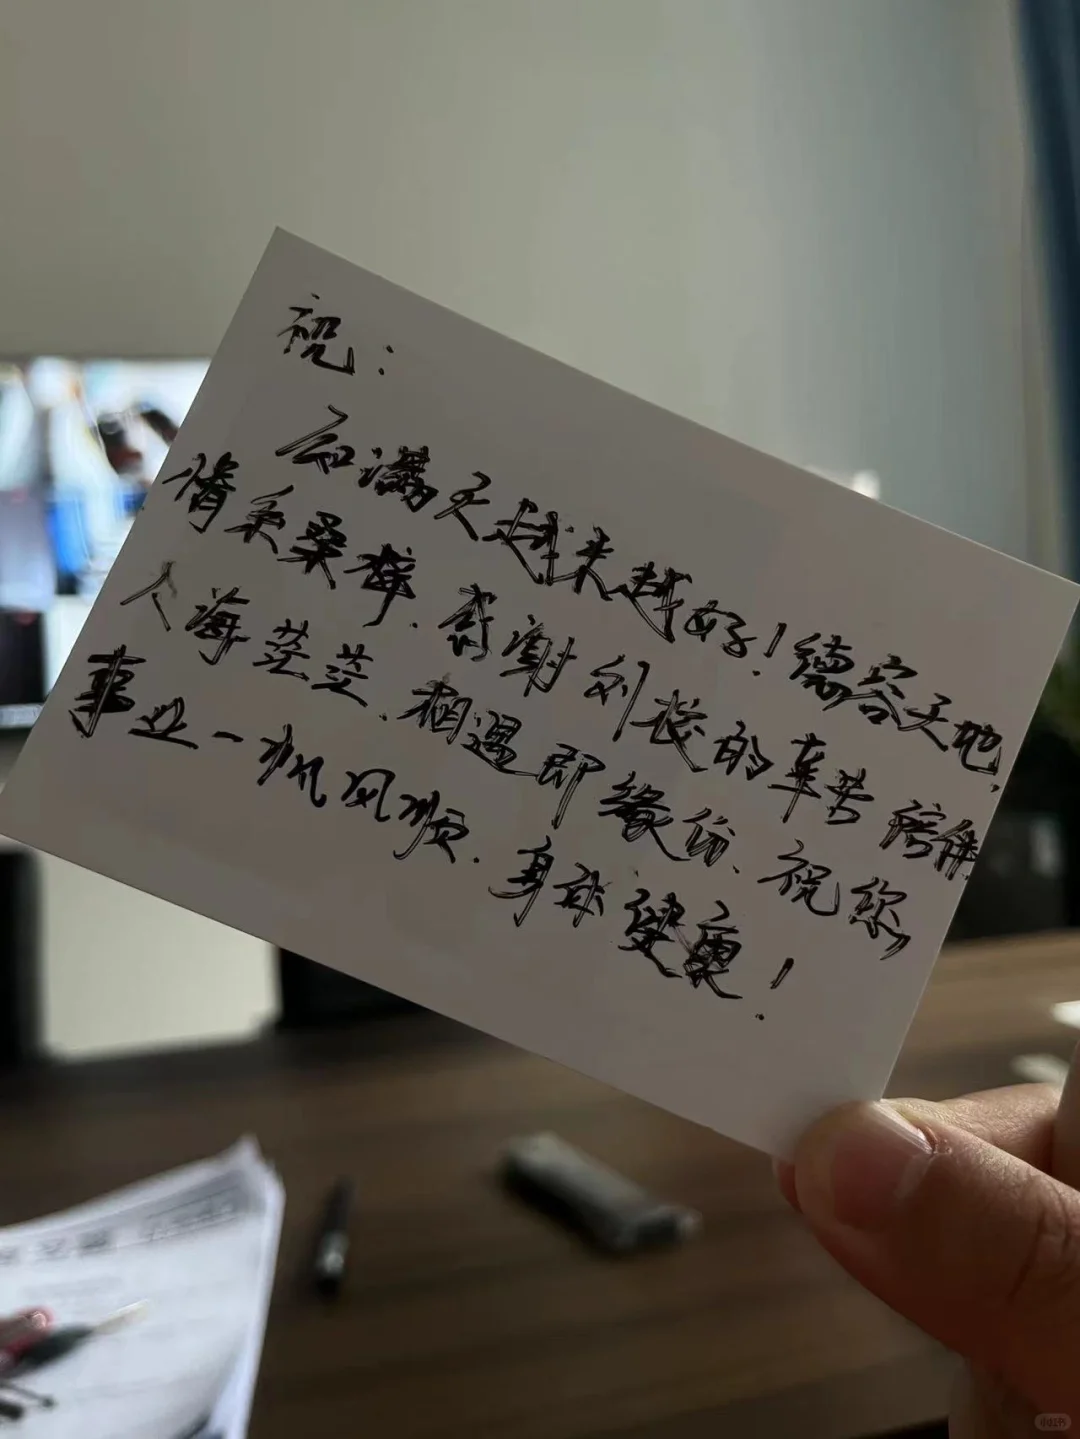 祝：
和满天越来越好！德容天地，
情系桑梓．感谢刘校的辛劳陪伴
人海茫茫．相遇即缘份、祝您，
事业一帆风顺．身体健康！
小红书